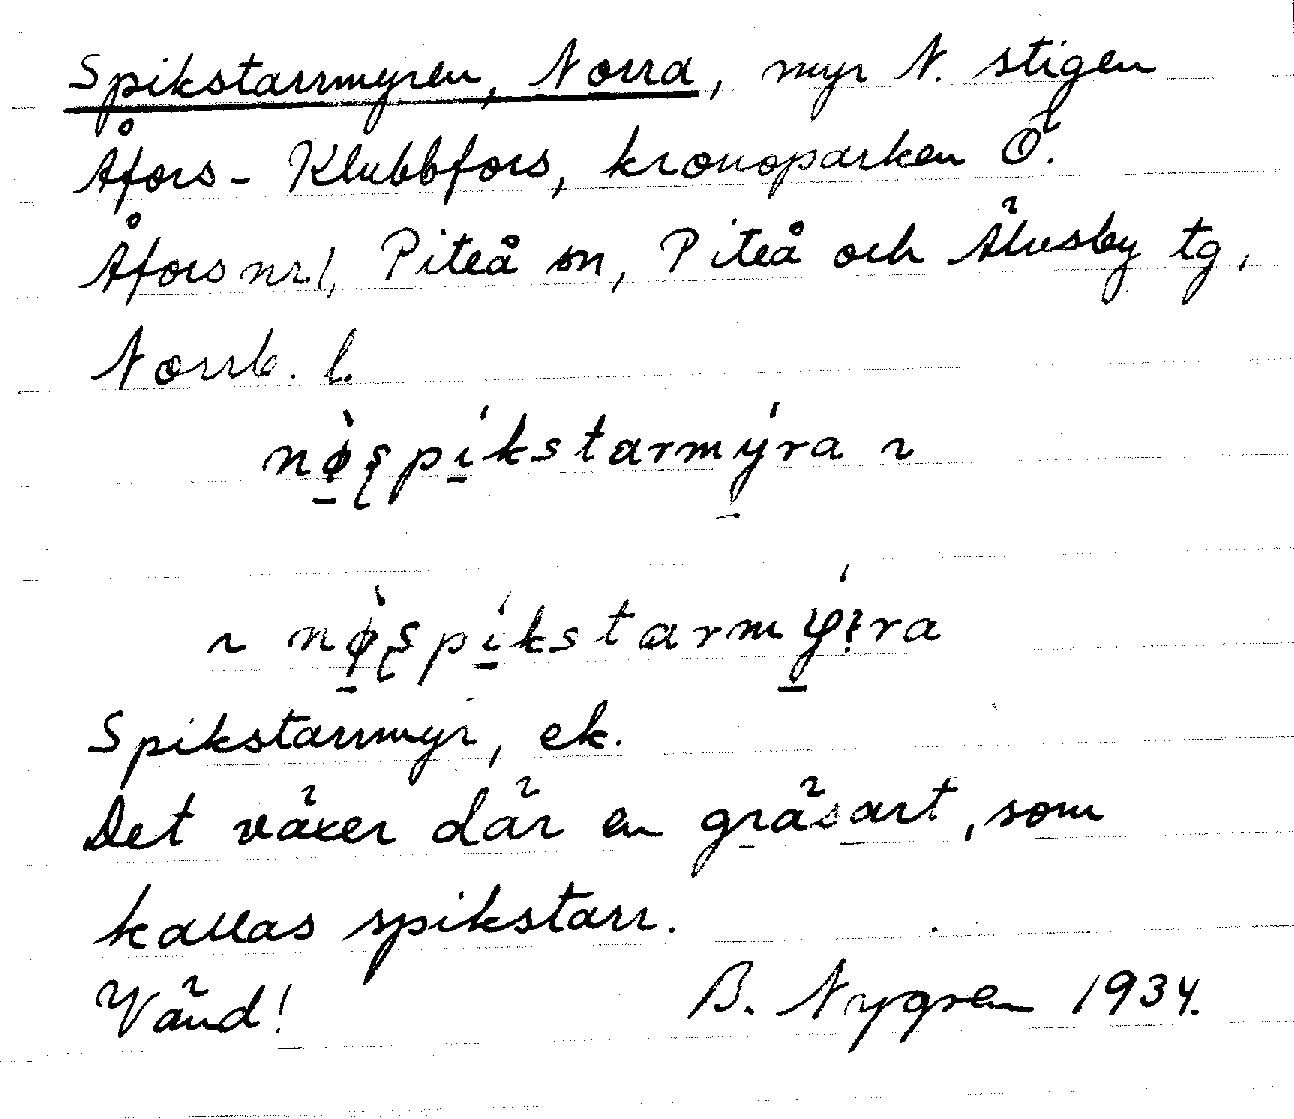 Spikstarrmyren, Norra, myr N. stigen
Åfors - Klubbfors, kronoparken Ö.
Åfors nr 1, Piteå sn, Piteå och Älvsby tg,
Norrb. l.
nø̀ʂpíkstarmýra ~
~ nø̀ʂpíkstarmý:ra
Spikstarrmyr, ek.
Det växer där en gräsart, som
kallas spikstarr.
Vänd! B. Nygren 1934.